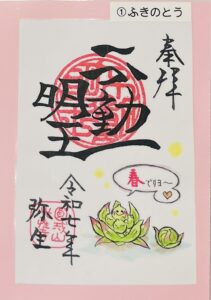 ①ふきのとう
奉拝
不動
明王
春ですヨ～
令和七年
弥生